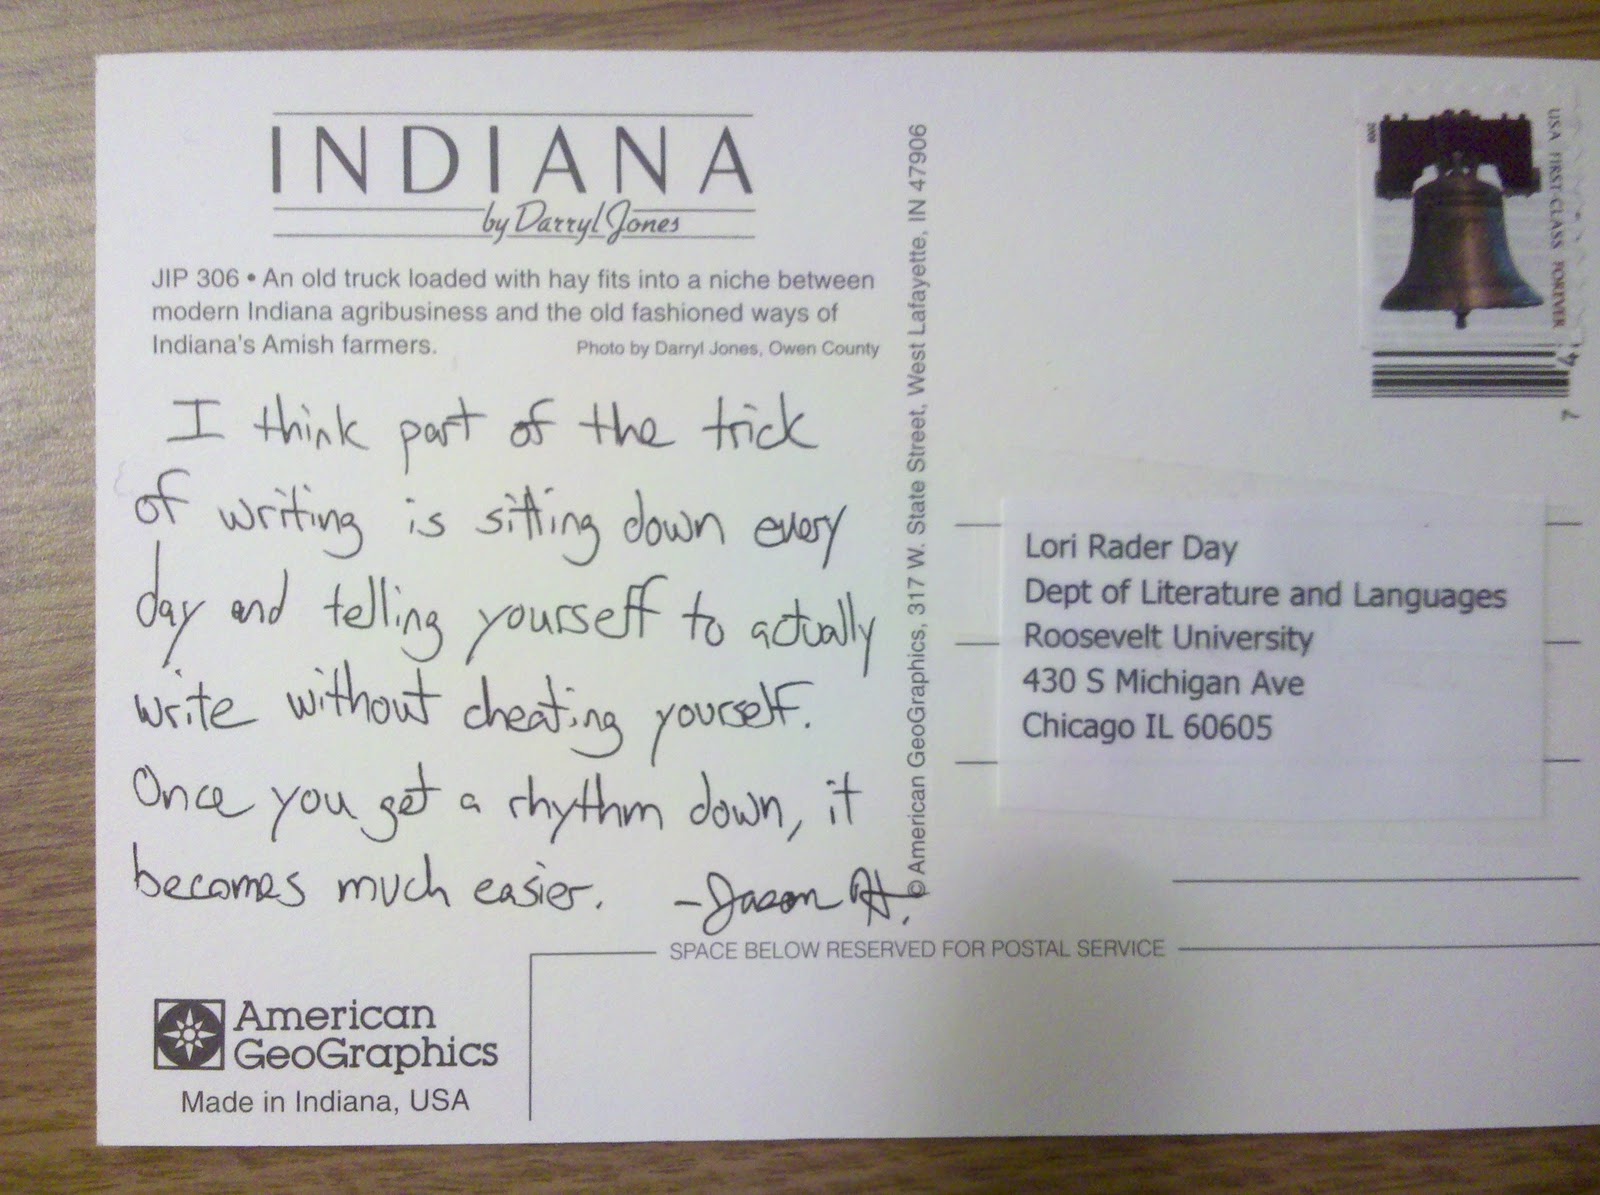 INDIANA
by Darryl Jones
JIP 306 • An old truck loaded with hay fits into a niche between
modern Indiana agribusiness and the old fashioned ways of
Indiana's Amish farmers.
Photo by Darryl Jones, Owen County
I think part of the trick
of writing is sitting down every
day and telling yourself to actually
write without cheating yourself.
Once you get a rhythm down, it
becomes much easier. -Jason H.
American GeoGraphics
Made in Indiana, USA
© American GeoGraphics, 317 W. State Street, West Lafayette, IN 47906
SPACE BELOW RESERVED FOR POSTAL SERVICE
USA FIRST-CLASS FOREVER
Lori Rader Day
Dept of Literature and Languages
Roosevelt University
430 S Michigan Ave
Chicago IL 60605